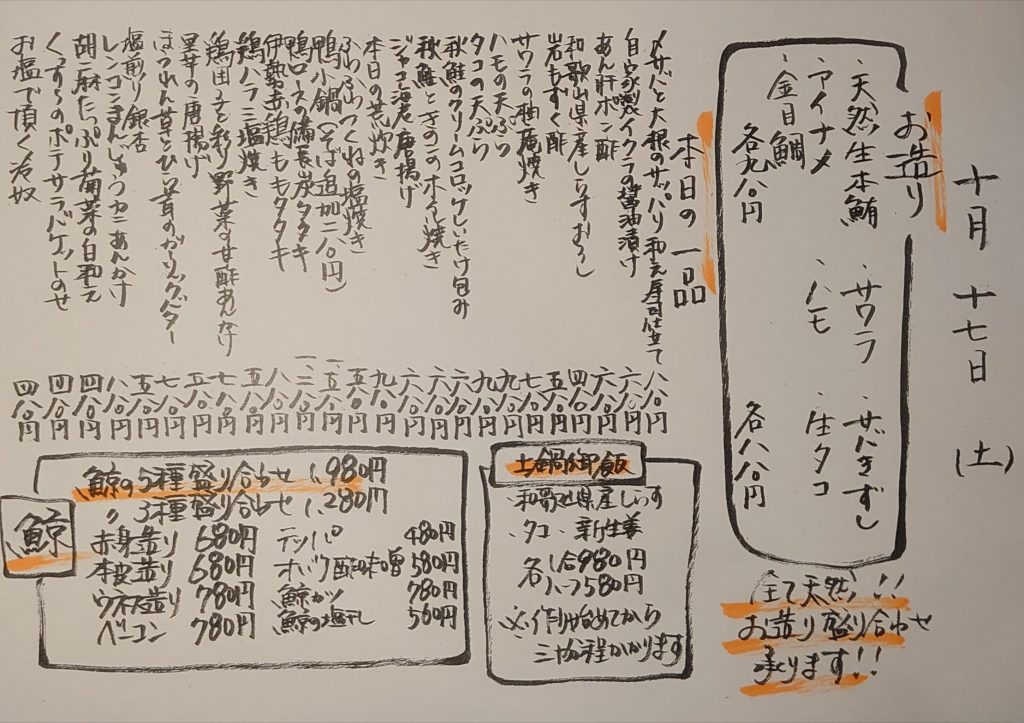 十月 十七日 (土)
お造り
・天然生本鮪 ・サワラ ・サバきずし
・アイナメ ・ハモ ・生タコ
・金目鯛
各九八〇円 各八八〇円
全て天然!!
お造り盛り合わせ
承ります!!
本日の一品
〆サバと大根のサッパリ和え寿司仕立て 八八〇円
自家製イクラの醤油漬け 六八〇円
あん肝ポン酢 六八〇円
和歌山県産しらすおろし 四八〇円
岩もずく酢 五八〇円
サワラの柚庵焼き 七八〇円
ハモの天ぷら 九八〇円
タコの天ぷら 九八〇円
秋鮭のクリームコロッケしいたけ包み 六八〇円
秋鮭ときのこのホイル焼き 六八〇円
ジャコ唐揚げ 六八〇円
本日の荒炊き 九八〇円
ふわふわつくねの塩焼き 五八〇円
鴨小鍋(そば追加二八〇円) 一、五八〇円
鴨ロースの備長炭タタキ 一、二八〇円
伊勢赤鶏ももタタキ 八八〇円
鶏ハラミ塩焼き 五八〇円
鶏団子と彩り野菜の甘酢あんかけ 七八〇円
里芋の唐揚げ 五八〇円
ほうれん草とひら茸のガーリックバター 七八〇円
塩煎り銀杏 五八〇円
レンコンまんじゅうカニあんかけ 八八〇円
胡麻たっぷり菊菜の白和え 四八〇円
くんずらのポテサラバケットのせ 四八〇円
お塩で頂く冷奴 四八〇円
土鍋御飯
・和歌山県産しらす
・タコ ・新生姜
各 1合980円
ハーフ580円
※作り始めてから
三十分程かかります
鯨
鯨の5種盛り合わせ 1,980円
〃 3種盛り合わせ 1,280円
赤身造り 680円 テッパ 480円
本皮造り 680円 オバケ酢味噌 580円
ウネス造り 780円 鯨カツ 780円
ベーコン 780円 鯨の塩干し 560円